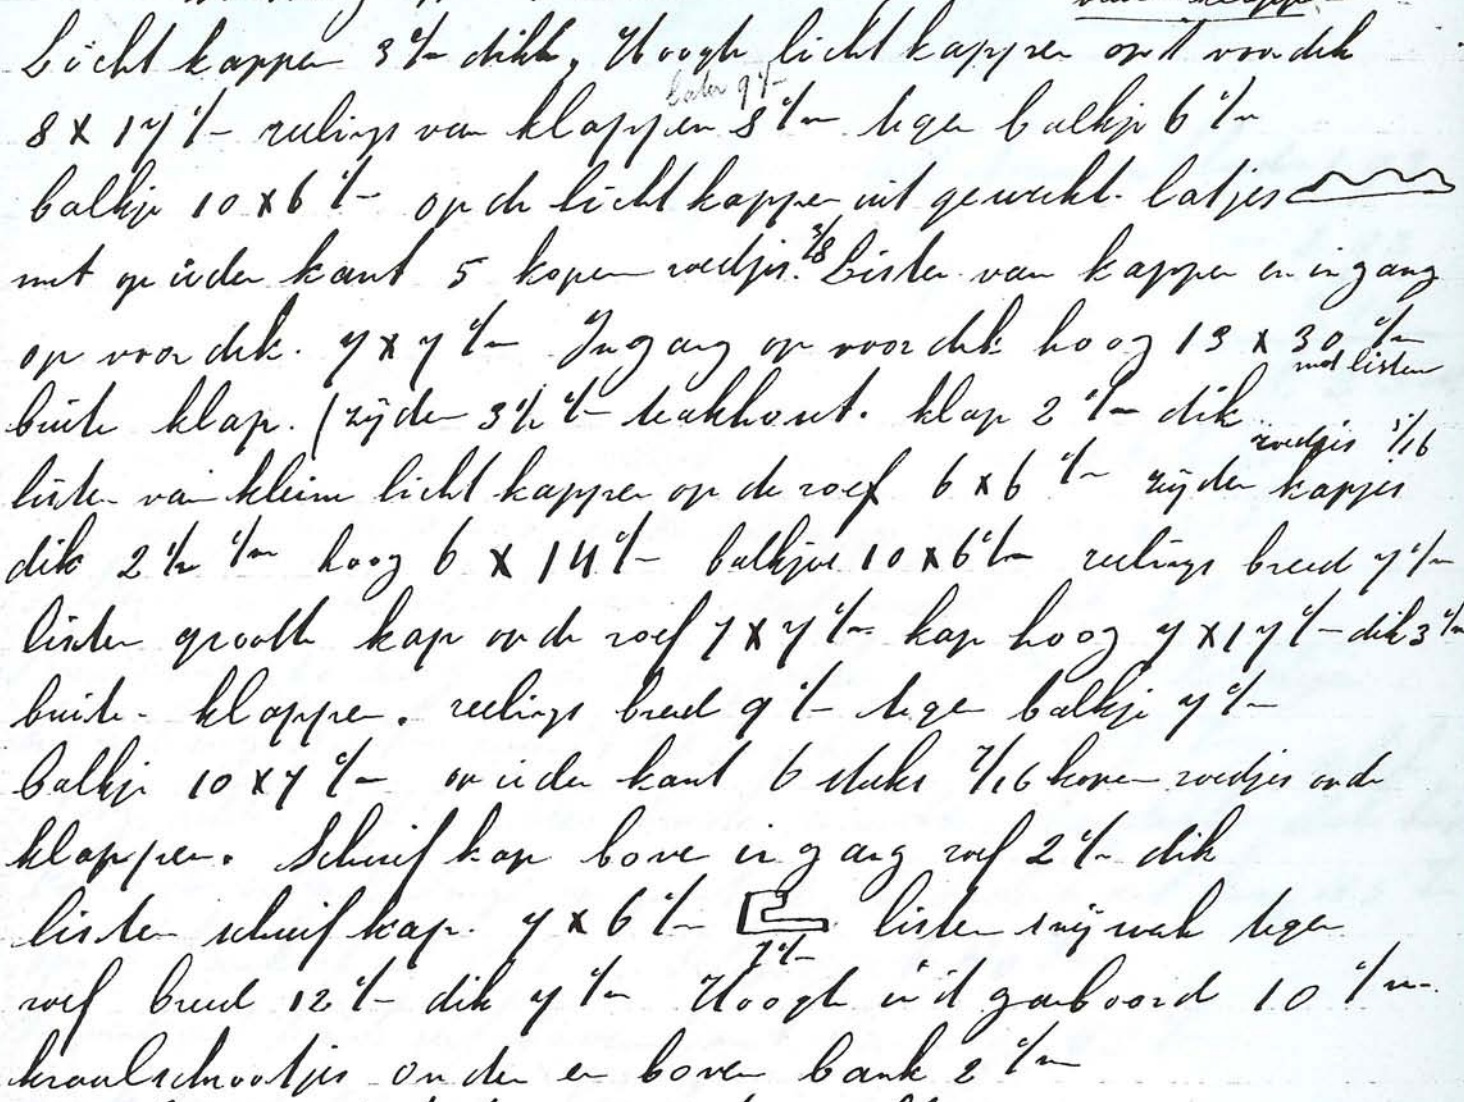 Licht kappen 3 c/m dikk, Hoogte licht kappen op't voordek
later 9 c/m
8 x 17 c/m reelings van klappen 8 c/m tegen balkje 6 c/m
balkje 10 x 6 c/m op de licht kappen uit gewerkt latjes
met op ieder kant 5 kopen roedjes. 3/8 Listen van kappen en ingang
op voor dek. 7 x 7 c/m Ingang op voor dek hoog 13 x 30 c/m
met listen
buite klap. (zijden 3 1/2 c/m teakhout. klap 2 c/m dik
roedjes 5/16
listen van kleine licht kappen op de roef 6 x 6 c/m zijden kapjes
dik 2 1/2 c/m hoog 6 x 14 c/m balkjes 10 x 6 c/m reelings breed 7 c/m
listen groote kap op de roef 7 x 7 c/m kap hoog 7 x 17 c/m dik 3 c/m
buite klappen. reelings breed 9 c/m tegen balkje 7 c/m
balkje 10 x 7 c/m op ieder kant 6 stuks 7/16 kopen roedjes op de
klappen. Schuif kap boven ingang roef 2 c/m dik
listen schuif kap. 7 x 6 c/m listen tegen
7 c/m
roef breed 12 c/m dik 4 c/m Hoogte in't gaaboord 10 c/m
kraalschrootjes onder en boven bank 2 c/m